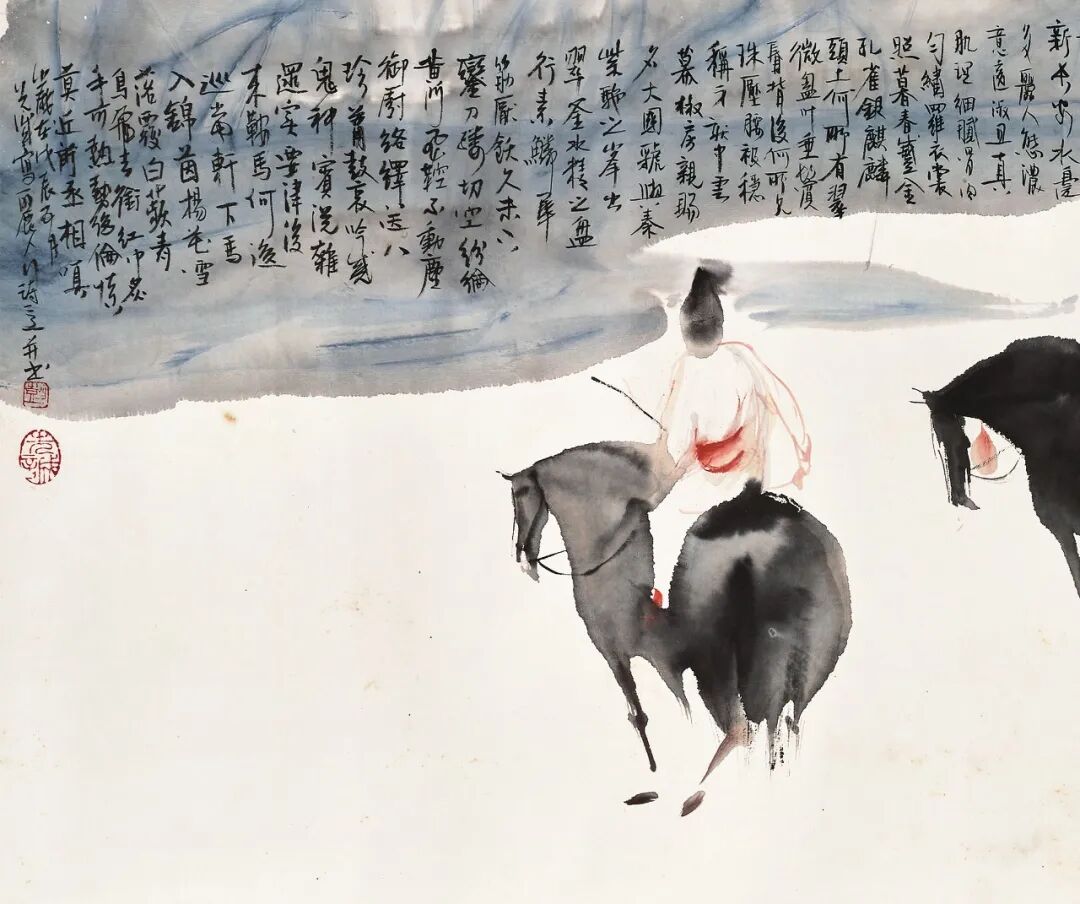 新長安水邊
多麗人態濃
意遠淑且真
肌理細膩骨肉
勻繡羅衣裳
照暮春蹙金
孔雀銀麒麟
頭上何所有翠
微盍叶垂鬢
唇背後何所見
珠壓腰衱穩
稱身就中雲
幕椒房親賜
名大國虢與秦
紫駞之峯出
翠釜水精之盤
行素鱗犀
筯厭飫久未下
鑾刀縷切空紛綸
黃門飛鞚不動塵
御廚絡繹送八
珍簫鼓哀吟感
鬼神賓從雜
遝實要津後
來鞍馬何逡
巡當軒下馬
入錦茵楊花雪
落覆白蘋青
鳥飛去銜紅巾炙
手可熱勢絕倫慎
莫近前丞相嗔
歲在戊辰五月
寫麗人行詩意并書